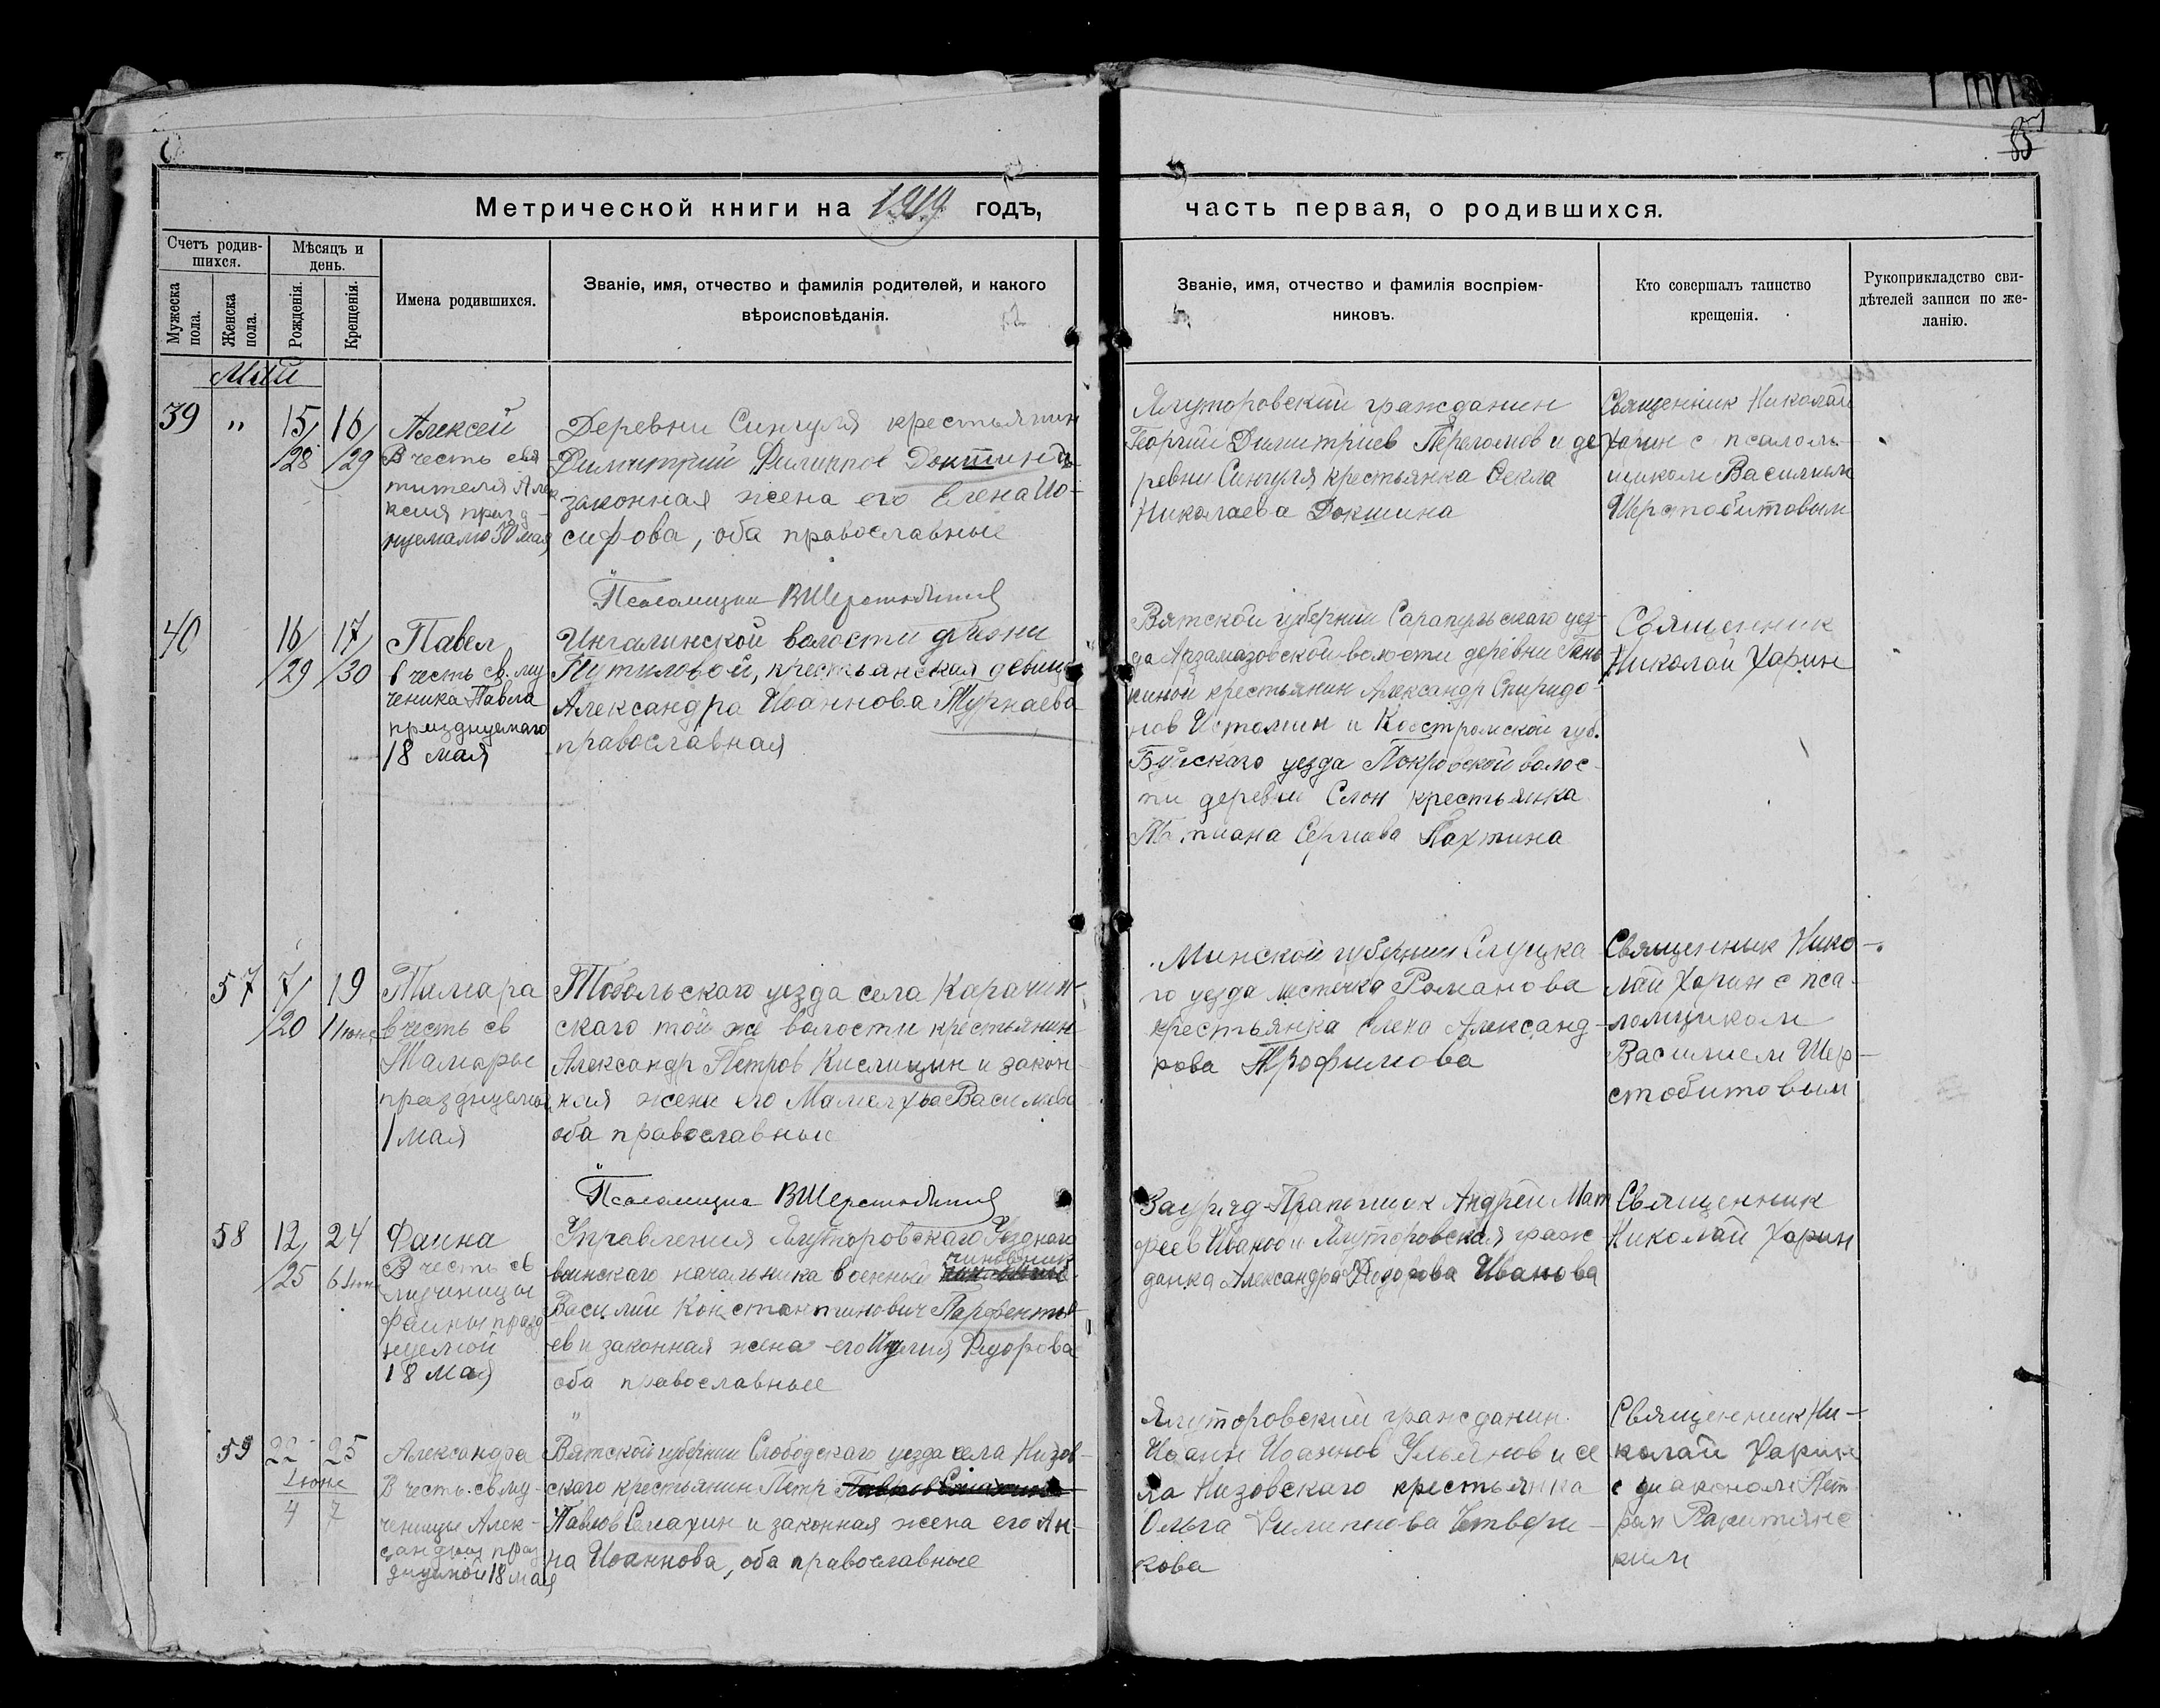 Метрической книги на 1919 годъ,
часть первая, о родившихся.
Счетъ родив-
шихся.
Мужеска
пола.
Женска
пола.
Мѣсяцъ и
день.
Рожденія.
Крещенія.
Имена родившихся.
Званіе, имя, отчество и фамилія родителей, и какого
вѣроисповѣданія.
Званіе, имя, отчество и фамилія воспріем-
никовъ.
Кто совершалъ таинство
крещенія.
Рукоприкладство сви-
дѣтелей записи по же-
ланію.
Май
39 " 15/28 16/29
Алексей
В честь свя
тителя Алек
ксия празд-
нуемаго 30 мая
Деревни Сингуля крестьянин
Димитрий Филиппов Докшин
законная жена его Елена Ио-
сифова, оба православные
Псаломщик В Шерстобитов
Ялуторовский гражданин
Георгий Димитриев Переломов и де
ревни Сингуля крестьянка Фекла
Николаева Докшина
Священник Николай
Харин с псалом-
щиком Василием
Шерстобитовым
40 16/29 17/30
Павел
в честь св. му
ченика Павла
празднуемаго
18 мая
Ингалинской волости д.
Путиловой, крестьянская девица
Александра Иоаннова Журнаева
православная
Вятской губернии Сарапульскаго уез-
да Арзамазовской волости деревни Гань
киной крестьянин Александр Спиридо-
нов Истомин и Костромской губ.
Буйскаго уезда Покровской волос-
ти деревни Слон крестьянка
Татиана Сергиева Пахтина
Священник
Николай Харин
57 7/20 19
1 июня
Тамара
в честь св
Тамары
празднуемой
1 мая
Тобольскаго уезда села Карачин-
скаго той же волости крестьянин
Александр Петров Кислицин и закон-
ная жена его Мамелхва Василиева
оба православные
Псаломщик В Шерстобитов
Минской губернии Слуцка
го уезда местечка Романова
крестьянка Елена Александ-
рова Трофимова
Священник Нико-
лай Харин с пса-
ломщиком
Василием Шер-
стобитовым
58 12/25 24
6 июня
Фаина
В честь св
мученицы
Фаины празд
нуемой
18 мая
Управления Ялуторовскаго Уезднаго
чиновник
воинскаго начальника военный
Василий Константинович Парфентье-
ев и законная жена его Иулия Федорова
оба православные
Зауряд-Прапорщик Андрей Мат
феев Иванов и Ялуторовская граж
данка Александра Федорова Иванова
Священник
Николай Харин
59 22 25
Июня
4 7
Александра
В честь св му-
ченицы Алек-
сандры праз
днуемой 18 мая
Вятской губернии Слободскаго уезда села Низов-
скаго крестьянин Петр
Павлов Самахин и законная жена его Ан-
на Иоаннова, оба православные
Ялуторовский гражданин
Иоанн Иоаннов Ульянов и се
ла Низовскаго крестьянка
Ольга Филиппова Четвери-
кова
Священник Ни-
колай Харин
с диаконом Пет
ром Ракитянс
ким